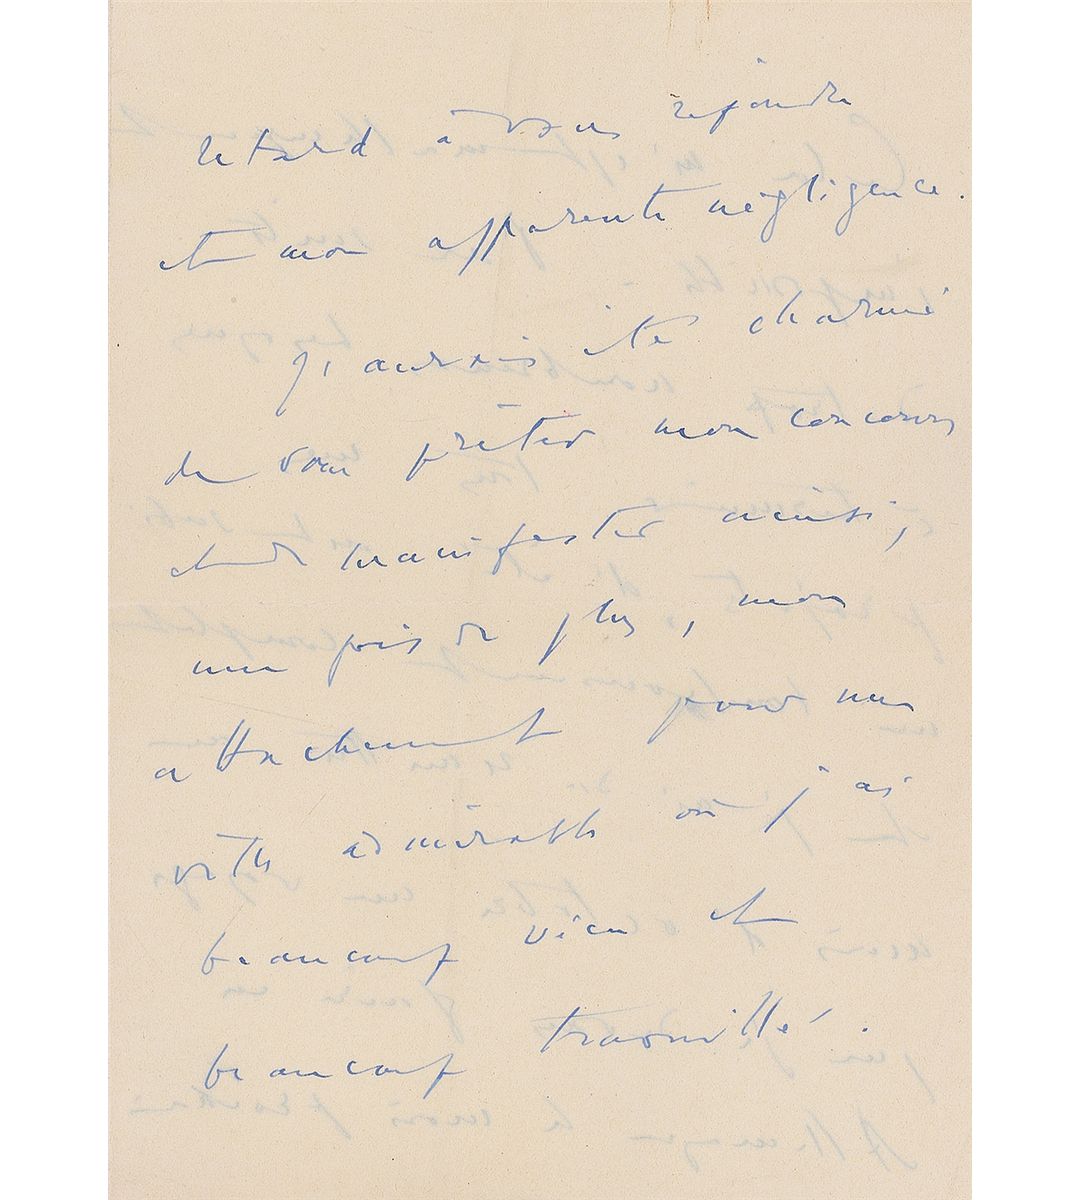 retard à vous répondre
et mon apparente négligence.
J'aurais été charmé
de vous prêter mon concours
et de manifester ainsi,
une fois de plus, mon
attachement pour une
ville admirable où j'ai
beaucoup vécu et
beaucoup travaillé.